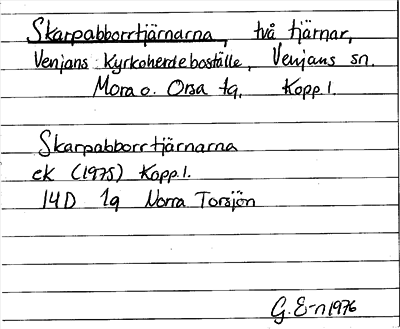 Skarpabborrtjärnarna, två tjärnar,
Venjans kyrkoherdeboställe, Venjans sn.
Mora o. Orsa tg. Kopp. l.
Skarpabborrtjärnarna
ek (1975) Kopp. l.
14D 1g Norra Torsjön
G. E-n 1976